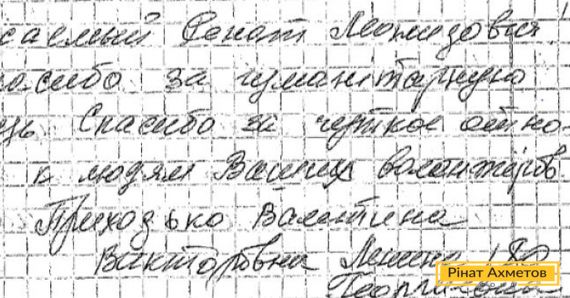 саемый Ренат Леонидович!
асибо за гуманитарную
щь. Спасибо за чуткое отно-
к людям Ваших волонтёров.
Приходько Валентина
Викторовна Ленина
Рінат Ахметов